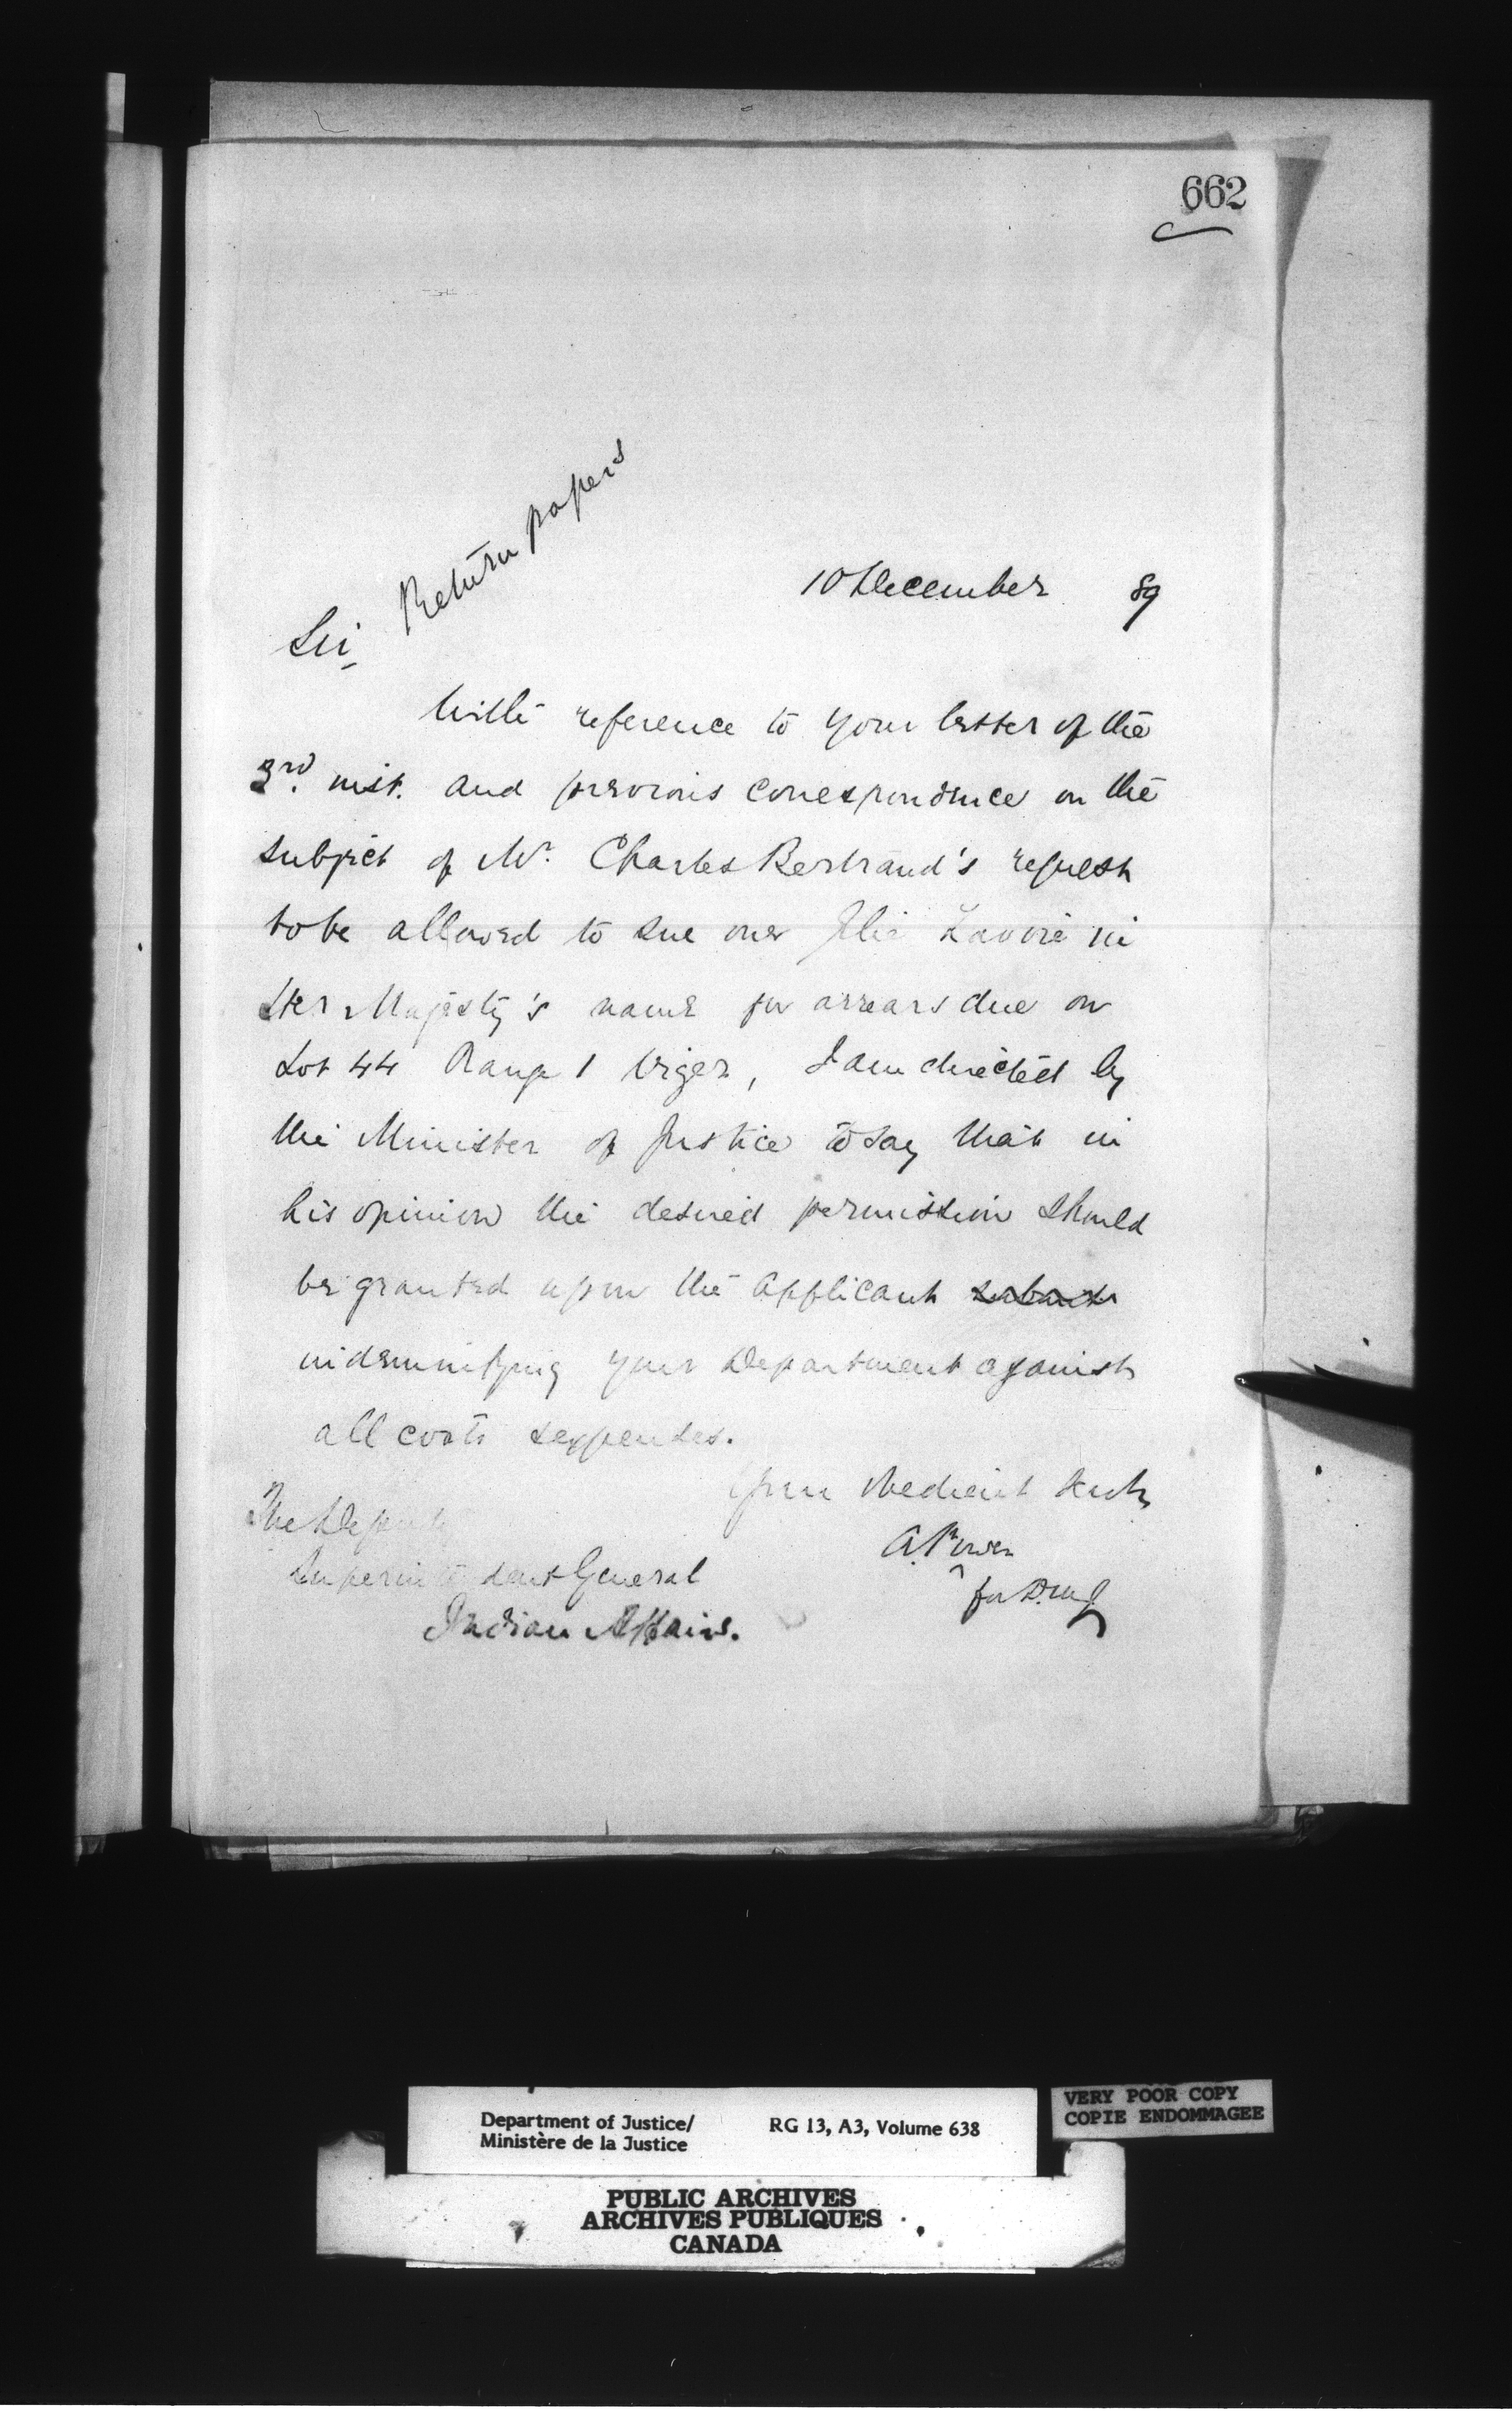 662
Return papers
10 December 89
Sir,
With reference to your letter of the
3rd. inst. and previous correspondence on the
subject of Mr. Charles Bertrand's request
to be allowed to sue one Elie Lavoie in
Her Majesty's name for arrears due on
Lot 44 Range 1 Viger, I am directed by
the Minister of Justice to say that in
his opinion the desired permission should
be granted upon the applicant
indemnifying your Department against
all costs & expenses.
Your obedient Servt
A. Power
for D.M.J.
The Deputy
Superintendent General
Indian Affairs.
Department of Justice/
Ministère de la Justice
RG 13, A3, Volume 638
VERY POOR COPY
COPIE ENDOMMAGEE
PUBLIC ARCHIVES
ARCHIVES PUBLIQUES
CANADA